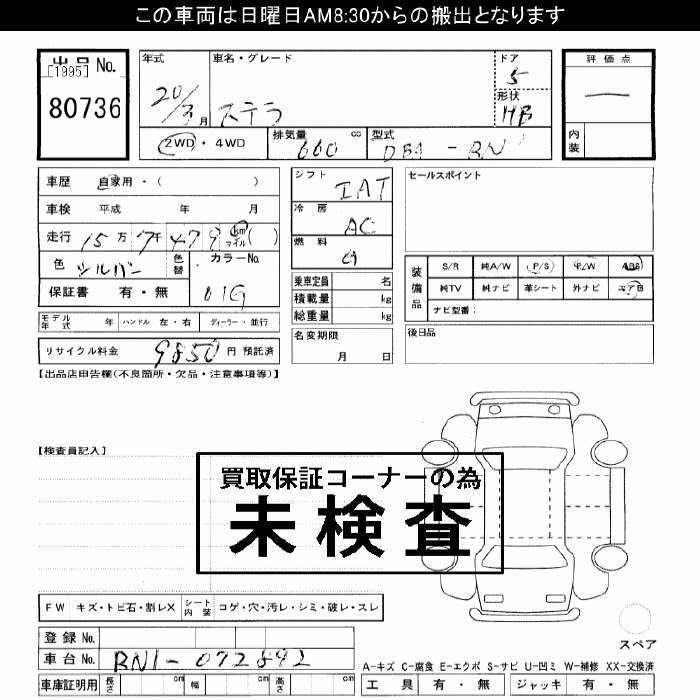 この車両は日曜日AM8:30からの搬出となります
出品 No.
[1995]
80736
年式
20/3月
車名・グレード
ステラ
ドア
5
形状
HB
評価点
内装
2WD・4WD
排気量
660 cc
型式
DBA - RN1
車歴 自家用・( )
車検 平成 年 月
走行 15万7千479 km マイル ( )
色 シルバー
色替
カラーNo.
01G
保証書 有・無
シフト
IAT
冷房
AC
燃料
G
乗車定員 名
積載量 kg
総重量 kg
名変期限
月 日
セールスポイント
装備品
S/R 純A/W P/S P/W ABS
純TV 純ナビ 革シート 外ナビ エアB
ナビ型番:
後日品
モデル年式 年 ハンドル 左・右 ディーラー・並行
リサイクル料金 9850 円 預託済
【出品店申告欄(不良箇所・欠品・注意事項等)】
【検査員記入】
買取保証コーナーの為
未検査
FW キズ・トビ石・割レX シート内装 コゲ・穴・汚レ・シミ・破レ・スレ
登録 No.
車台 No. RN1-072892
車庫証明用 長さ cm 幅 cm 高さ cm
スペア
A-キズ C-腐食 E-エクボ S-サビ U-凹ミ W-補修 XX-交換済
工具 有・無 ジャッキ 有・無